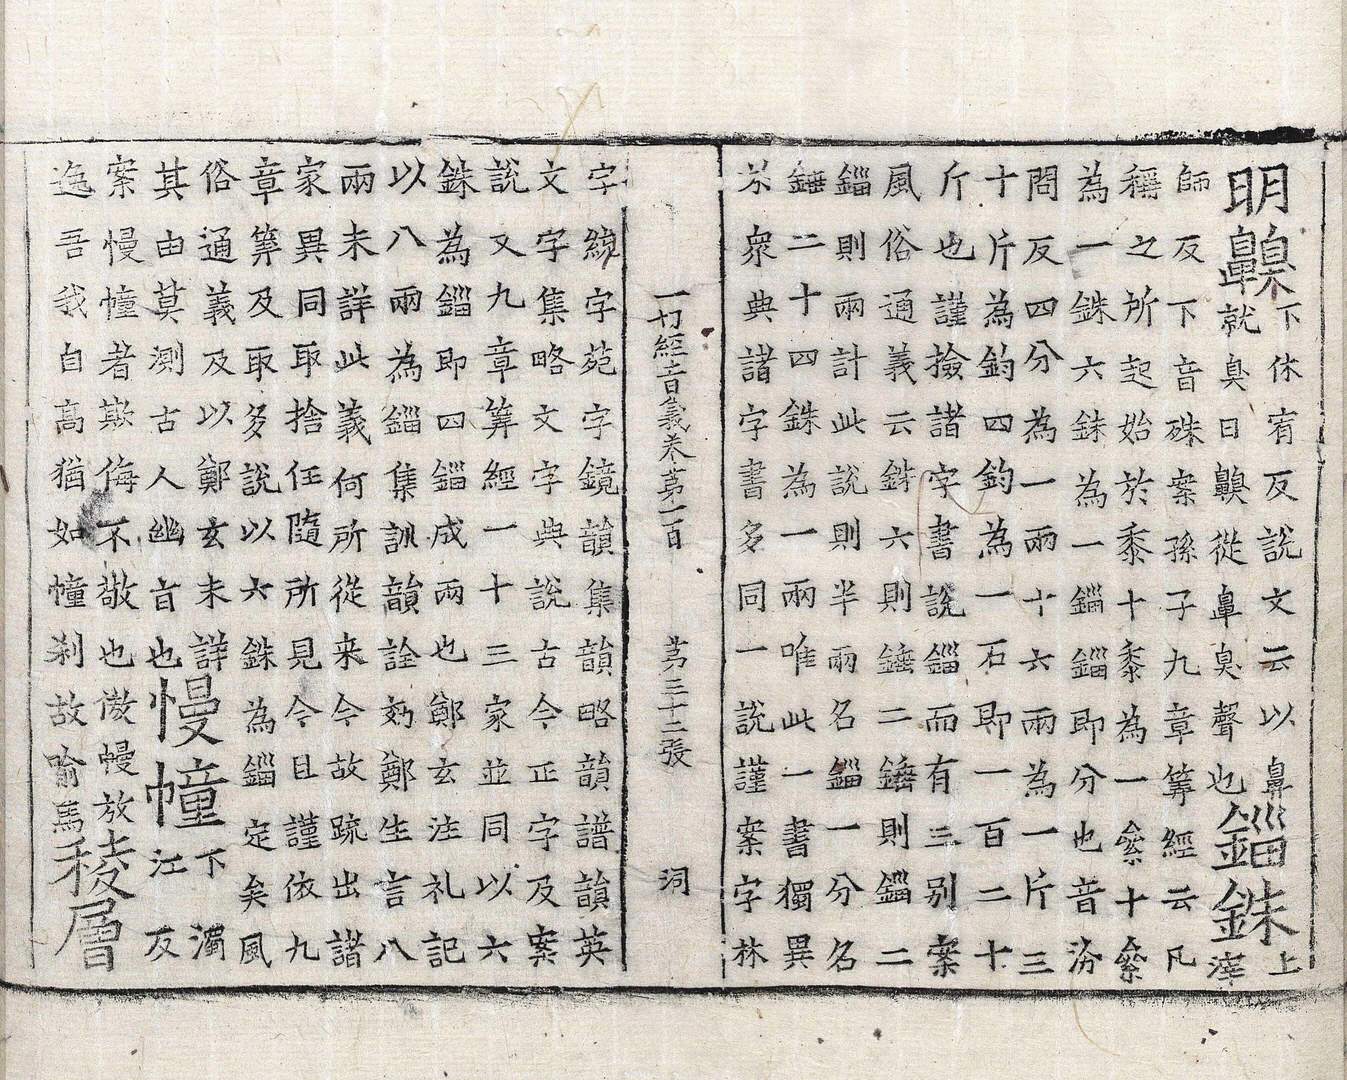 明齅下休宥反說文云以鼻
就臭曰齅從鼻臭聲也錙銖上滓
師反下音殊案孫子九章筭經云凡
稱之所起始於黍十黍為一絫十絫
為一銖六銖為一錙錙即分也音汾
問反四分為一兩十六兩為一斤三
十斤為鈞四鈞為一石即一百二十
斤也謹撿諸字書說錙而有三別案
風俗通義云銖六則錘二錘則錙二
錙則兩計此說則半兩名錙一分名
錘二十四銖為一兩唯此一書獨異
尒眾典諸字書多同一說謹案字林
一切經音義卷苐一百 苐三十二張 洞
字統字苑字鏡韻集韻略韻譜韻英
文字集略文字典說古今正字及案
說又九章筭經一十三家並同以六
銖為錙即四錙成兩也鄭玄注礼記
以八兩為錙集訓韻詮効鄭生言八
兩未詳此義何所從来今故疏出諸
家異同取捨任隨所見今且謹依九
章筭及取多說以六銖為錙定矣風
俗通義及以鄭玄未詳
其由莫測古人幽旨也慢幢下濁江反
案慢幢者欺侮不敬也傲慢放
逸吾我自高猶如幢刹故喻焉稜層